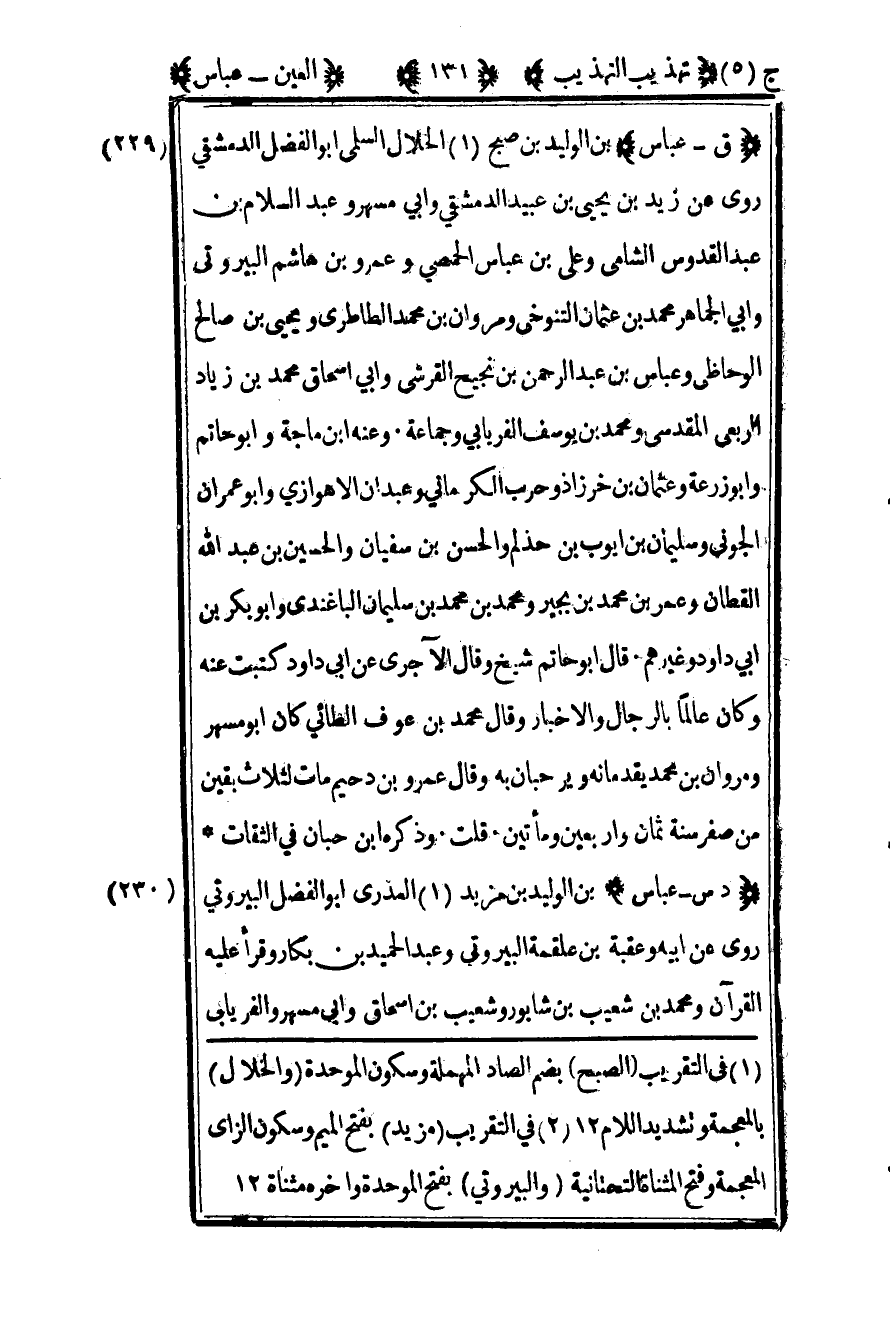 ج (٥) ﴿ تهذيب التهذيب ﴾ ﴿ ١٣١ ﴾ ﴿ العين ـ عباس ﴾
﴿ ق ـ عباس ﴾ بن الوليد بن صبح (١) الخلال السلمى ابو الفضل الدمشقي (٢٢٩)
روى عن زيد بن يحيى بن عبيد الدمشقي وابي مسهر و عبد السلام بن
عبد القدوس الشامى وعلى بن عباس الحمصي و عمرو بن هاشم البيروتى
وابي الجماهر محمد بن عثمان التنوخى ومروان بن محمد الطاطرى و يحيى بن صالح
الوحاظى وعباس بن عبد الرحمن بن نجيح القرشى وابي اسحاق محمد بن زياد
الربعى المقدسى ومحمد بن يوسف الفريابي وجماعة ٠ وعنه ابن ماجة و ابو حاتم
وابو زرعة وعثمان بن خرزاذ وحرب الكرماني وعبدان الاهوازي وابو عمران
الجوني وسليمان بن ايوب بن حذلم والحسن بن سفيان والحسين بن عبد الله
القطان وعمر بن محمد بن بجير ومحمد بن محمد بن سليمان الباغندى وابو بكر بن
ابي داود وغيرهم ٠ قال ابو حاتم شيخ وقال الآجرى عن ابى داود كتبت عنه
وكان عالمًا بالرجال والاخبار وقال محمد بن عوف الطائي كان ابو مسهر
ومروان بن محمد يقدمانه ويرحبان به وقال عمرو بن دحيم مات لثلاث بقين
من صفر سنة ثمان واربعين ومأتين ٠ قلت ٠ وذكره ابن حبان في الثقات *
﴿ د س ـ عباس ﴾ بن الوليد بن مزيد (١) العذرى ابو الفضل البيروتي (٢٣٠)
روى عن ابيه وعقبة بن علقمة البيروتي وعبد الحميد بن بكار وقرأ عليه
القرآن ومحمد بن شعيب بن شابور وشعيب بن اسحاق وابي مسهر والفريابى
(١) فى التقريب (الصبح) بضم الصاد المهملة وسكون الموحدة (والخلال)
بالمعجمة وتشديد اللام ١٢ (٢) في التقريب (مزيد) بفتح الميم وسكون الزاى
المعجمة وفتح المثناة التحتانية (والبيروتي) بفتح الموحدة واخره مثناة ١٢